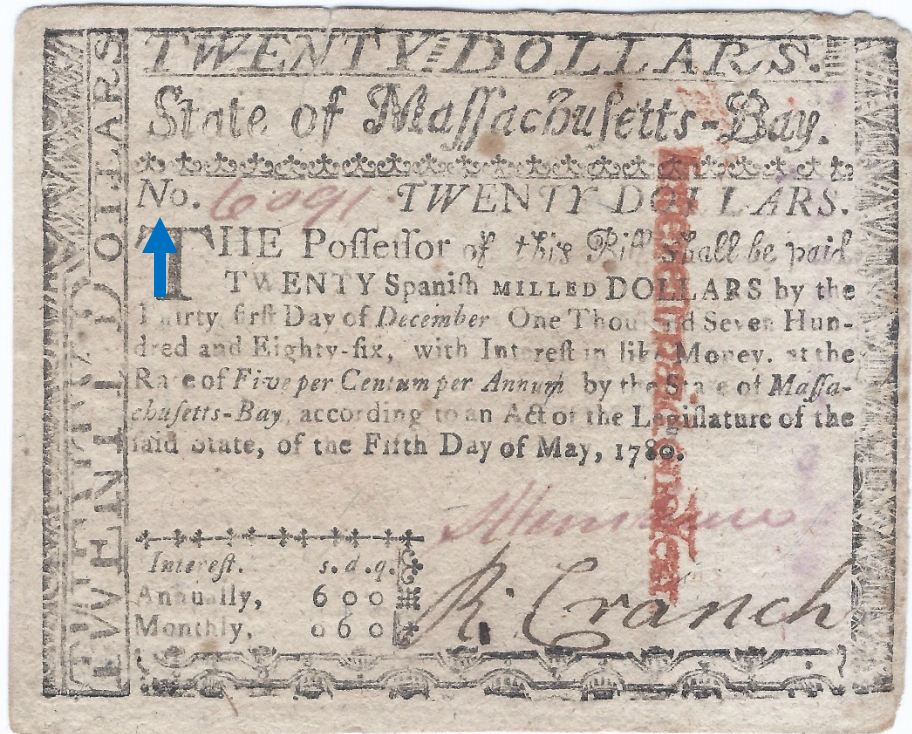 TWENTY DOLLARS.
State of Maſſachuſetts-Bay.
No. 6091 TWENTY DOLLARS.
THE Poſſeſſor of this Bill shall be paid
TWENTY Spaniſh MILLED DOLLARS by the
Thirty firſt Day of December One Thouſand Seven Hun-
dred and Eighty-ſix, with Intereſt in like Money, at the
Rate of Five per Centum per Annum by the State of Maſſa-
chuſetts-Bay, according to an Act of the Legiſlature of the
ſaid State, of the Fifth Day of May, 1780.
R. Cranch
Intereſt. s. d. q.
Annually, 6 0 0
Monthly, 0 6 0
TWENTY DOLLARS